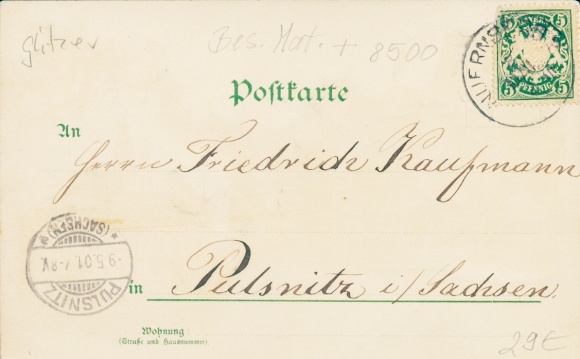 glitzer Bes. Mat. + 8500
5 5
PFENNIG
5 5
NUERNB
Postkarte
An
Herrn Friedrich Kaufmann
* (SACHSEN) *
-9.5.01.7-8V.
PULSNITZ
in Pulsnitz i/Sachsen.
Wohnung:
(Straße und Hausnummer)
29€